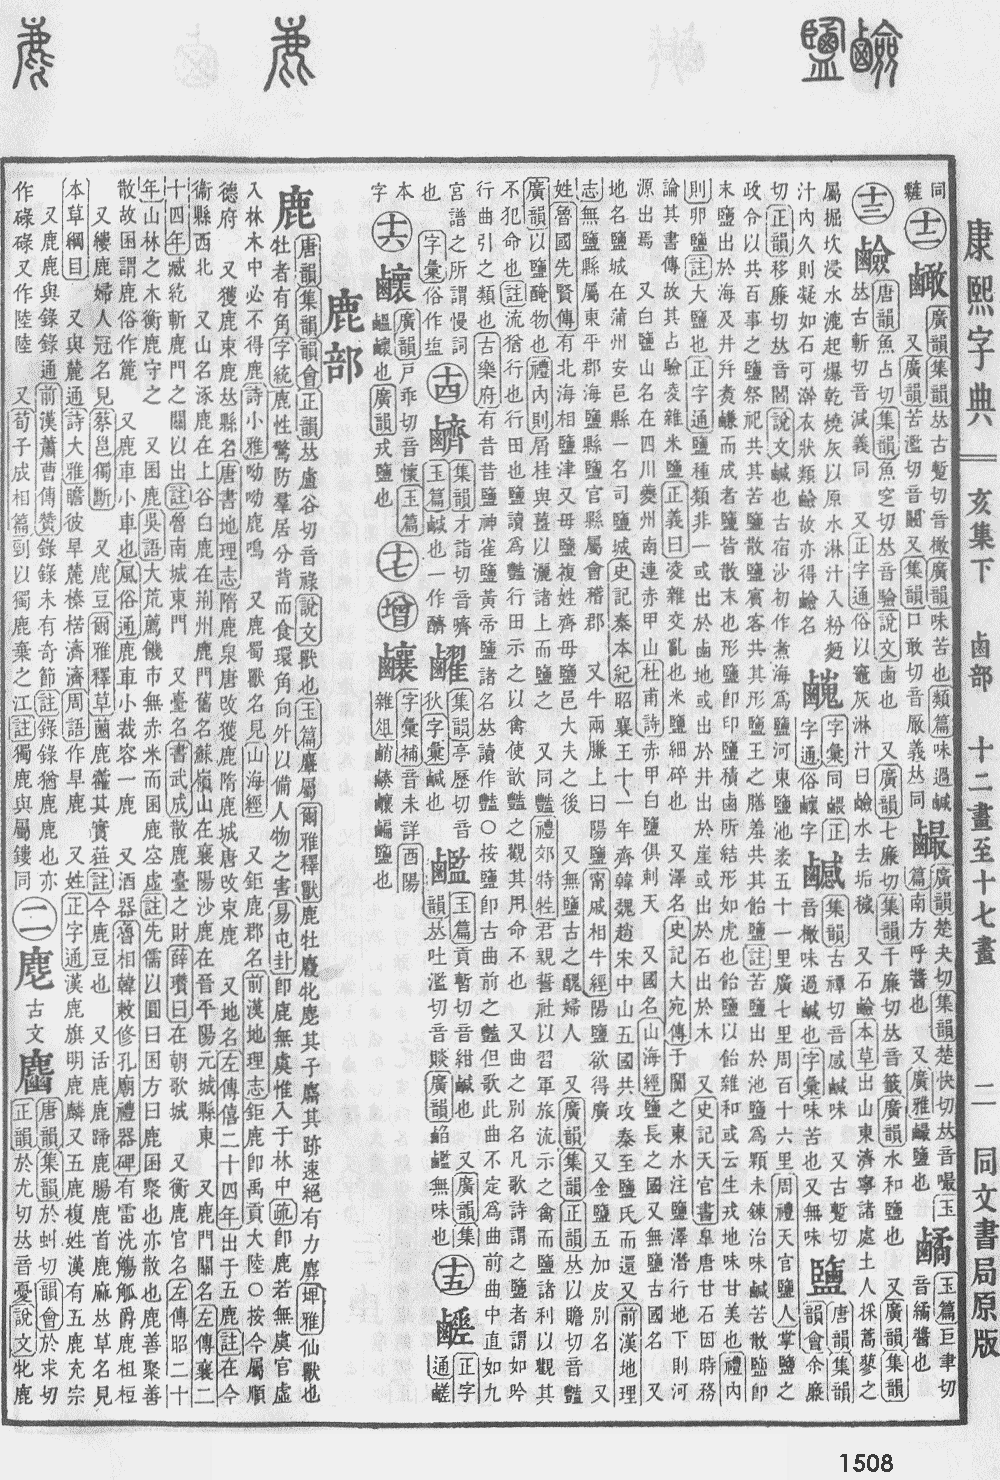 康熙字典 亥集下 鹵部 十二畫至十七畫 二 同文書局原版
同
十二
廣韻集韻𠀤古蹔切音橄廣韻味苦也類篇味過鹹
又廣韻苦濫切音闞又集韻口敢切音厰義𠀤同
廣韻楚夬切集韻楚快切𠀤音嘬玉
篇南方呼醬也 又廣雅鹽也
玉篇巨聿切
音繘醬也
十三 鹼
唐韻魚占切集韻魚窆切𠀤音驗說文鹵也 又廣韻七廉切集韻千廉切𠀤音籤廣韻水和鹽也 又廣韻集韻
𠀤古斬切音減義同 又正字通俗以竈灰淋汁曰鹼水去垢穢 又石鹼本草出山東濟寧諸處土人採蒿蓼之
屬掘坎浸水漉起爆乾燒灰以原水淋汁入粉麪
汁內久則凝如石可澣衣狀類鹼故亦得鹼名
字彙同
字通俗鹻字
正
集韻古禫切音感鹹味 又古蹔切
音橄味過鹹也字彙味苦也又無味
鹽
唐韻集韻
韻會余廉
切正韻移廉切𠀤音閻說文鹹也古宿沙初作煮海爲鹽河東鹽池袤五十一里廣七里周百十六里周禮天官鹽人掌鹽之
政令以共百事之鹽祭祀共其苦鹽散鹽賓客共其形鹽王之膳羞共其飴鹽註苦鹽出於池鹽爲顆未鍊治味鹹苦散鹽卽
末鹽出於海及井幷煑鹻而成者鹽皆散末也形鹽卽印鹽積鹵所結形如虎也飴鹽以飴雜和或云生戎地味甘美也禮內
則卵鹽註大鹽也正字通鹽種類非一或出於鹵地或出於井出於崖或出於石出於木 又史記天官書臯唐甘石因時務
論其書傳故其占驗凌雜米鹽正義曰凌雜交亂也米鹽細碎也 又澤名史記大宛傳于闐之東水注鹽澤潛行地下則河
源出焉 又白鹽山名在四川夔州南連赤甲山杜甫詩赤甲白鹽俱刺天 又國名山海經鹽長之國又無鹽古國名 又
地名鹽城在蒲州安邑縣一名司鹽城史記秦本紀昭襄王十一年齊韓魏趙宋中山五國共攻秦至鹽氏而還又前漢地理
志無鹽縣屬東平郡海鹽縣鹽官縣屬會稽郡 又牛兩膁上曰陽鹽甯戚相牛經陽鹽欲得廣 又金鹽五加皮別名 又
姓魯國先賢傳有北海相鹽津又母鹽複姓齊毋鹽邑大夫之後 又無鹽古之醜婦人 又廣韻集韻正韻𠀤以贍切音豔
廣韻以鹽醃物也禮內則屑桂與薑以灑諸上而鹽之 又同豔禮郊特牲君親誓社以習軍旅流示之禽而鹽諸利以觀其
不犯命也註流猶行也行田也鹽讀爲豔行田示之以禽使歆豔之觀其用命不也 又曲之別名凡歌詩謂之鹽者謂如吟
行曲引之類也古樂府有昔昔鹽神雀鹽黃帝鹽諸名𠀤讀作豔○按鹽卽古曲前之豔但歌此曲不定爲曲前曲中直如九
宮譜之所謂慢詞
也 字彙俗作塩
十四
集韻才詣切音嚌
玉篇鹹也一作醩
集韻亭歷切音
狄字彙鹹也
玉篇貢暫切音紺鹹也 又廣韻集
韻𠀤吐濫切音賧廣韻無味也
十五
正字
通䴾
本
字
十六
廣韻戸乖切音懷玉篇
也廣韻戎鹽也
十七 增
字彙補音未詳酉陽
雜俎鹽也
鹿部
鹿
唐韻集韻韻會正韻𠀤盧谷切音祿說文獸也玉篇麞屬爾雅釋獸鹿牡麚牝麀其子麛其跡速絕有力麉埤雅仙獸也
牡者有角字統鹿性驚防羣居分背而食環角向外以備人物之害易屯卦卽鹿無虞惟入于林中疏卽鹿若無虞官虛
入林木中必不得鹿詩小雅呦呦鹿鳴 又鹿蜀獸名見山海經 又鉅鹿郡名前漢地理志鉅鹿卽禹貢大陸○按今屬順
德府 又獲鹿束鹿𠀤縣名唐書地理志隋鹿泉唐改獲鹿隋鹿城唐改束鹿 又地名左傳僖二十四年出于五鹿註在今
衞縣西北 又山名涿鹿在上谷白鹿在荆州鹿門舊名蘇嶺山在襄陽沙鹿在晉平陽元城縣東 又鹿門關名左傳襄二
十四年臧紇斬鹿門之關以出註魯南城東門 又臺名書武成散鹿臺之財薛瓚曰在朝歌城 又衡鹿官名左傳昭二十
年山林之木衡鹿守之 又囷鹿吳語大荒薦饑市無赤米而囷鹿空虛註先儒以圓曰囷方曰鹿囷聚也亦散也鹿善聚善
散故囷謂鹿俗作簏 又鹿車小車也風俗通鹿車小裁容一鹿 又酒器魯相韓敕修孔廟禮器碑有雷洗觴觚爵鹿柤梪
又縷鹿婦人冠名見蔡邕獨斷 又鹿豆爾雅釋草蔨鹿藿其實莥註今鹿豆也 又活鹿鹿蹄鹿腸鹿首鹿麻𠀤草名見
本草綱目 又與麓通詩大雅瞻彼旱麓榛楛濟濟周語作旱鹿 又姓正字通漢鹿旗明鹿麟又五鹿複姓漢有五鹿充宗
又鹿鹿與錄錄通前漢蕭曹傳贊錄錄未有奇節註錄錄猶鹿鹿也亦
作碌碌又作陸陸 又荀子成相篇剄以獨鹿棄之江註獨鹿與屬鏤同
二
古
文
唐韻集韻於虯切韻會於求切
正韻於尤切𠀤音憂說文牝鹿
1508